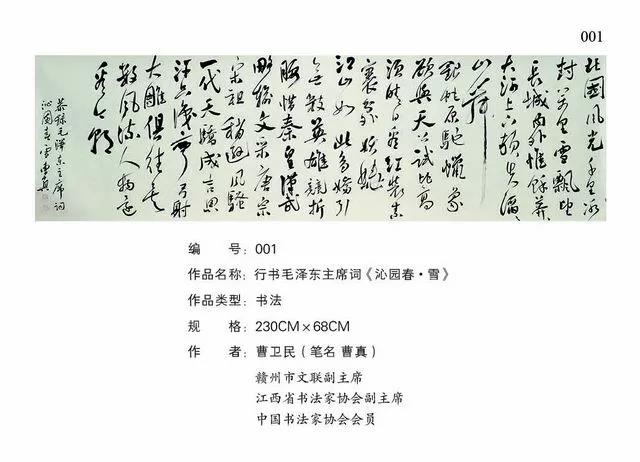 001
北國風光千里冰
封萬里雪飄望
長城內外惟餘莽
大河上下頓失滔
山舞
銀蛇原馳蠟象
欲與天公試比高
須晴日看紅裝素
裹分外妖嬈
江山如此多嬌引
無數英雄競折
腰惜秦皇漢武
略輸文采唐宗
宋祖稍遜風騷
一代天驕成吉思
汗只識彎弓射
大雕俱往矣
數風流人物還
看今朝
恭録毛澤東主席词
沁園春雪 曹真
编 号：001
作品名称：行书毛泽东主席词《沁园春·雪》
作品类型：书法
规 格：230CM×68CM
作 者：曹卫民（笔名 曹真）
赣州市文联副主席
江西省书法家协会副主席
中国书法家协会会员